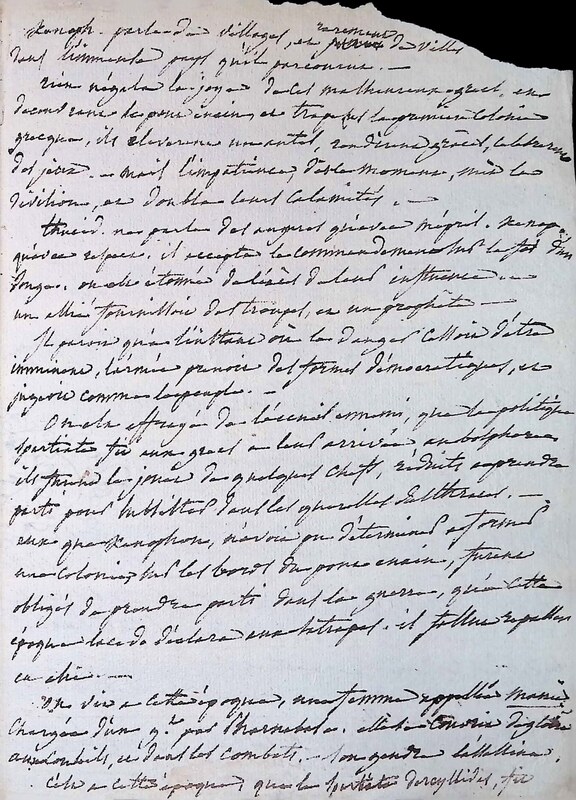 Xenoph. parle de villages, et rarement de villes
dans l'immense pays qu'il parcourut. —
rien n'égala la joye de ces malheureux grecs, en
découvrant le pont euxin, et trapesus la première colonie
grecque, ils eleverent un autel, rendirent grâces, celebrerent
des jeux. — mais l'impatience, dès ce moment, mit la
division, et doubla leurs calamités. —
thucid. ne parle des augures qu'avec mépris. Xenoph.
qu'avec respect. il accepta le commandement sur la foi d'un
songe. on est étonné de l'excès de leur influence. —
un allié fournissoit des troupes, et un prophète —
Il paroit qu'à l'instant où le danger cessoit d'être
imminent, l'armée prenoit des formes démocratiques, et
jugeoit comme le peuple. —
On est effrayé de l'accueil ennemi, que la politique
spartiate fit aux grecs à leur arrivée au bosphore
ils furent le jouet de quelques chefs, réduits à prendre
parti pour subsister dans les querelles des thraces. —
ceux que Xenophon, n'avoit pu déterminer à former
une colonie sur les bords du pont euxin, furent
obligés de prendre parti dans la guerre, qu'à cette
époque laced. déclara aux satrapes. il fallut repasser
en asie. —
On vit à cette époque, une femme appellée mania
chargée d'un gt. par Pharnabase. elle se couvrit de gloire
aux conseils, et dans les combats. — son gendre l'assassina.
C'est à cette époque, que le spartiate dercyllidas, fit